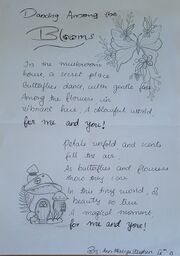 Dancing Among the
Blooms
In the mushroom
house, a secret place
Butterflies dance, with gentle
Among the flowers in
vibrant hue, A colourful world
for me and you!
Petals unfold and scents
fill the air
As butterflies and flowers
show they care
In this tiny world, of
beauty so true
A magical moment
for me and you!
By: Ann Mariya Stephen